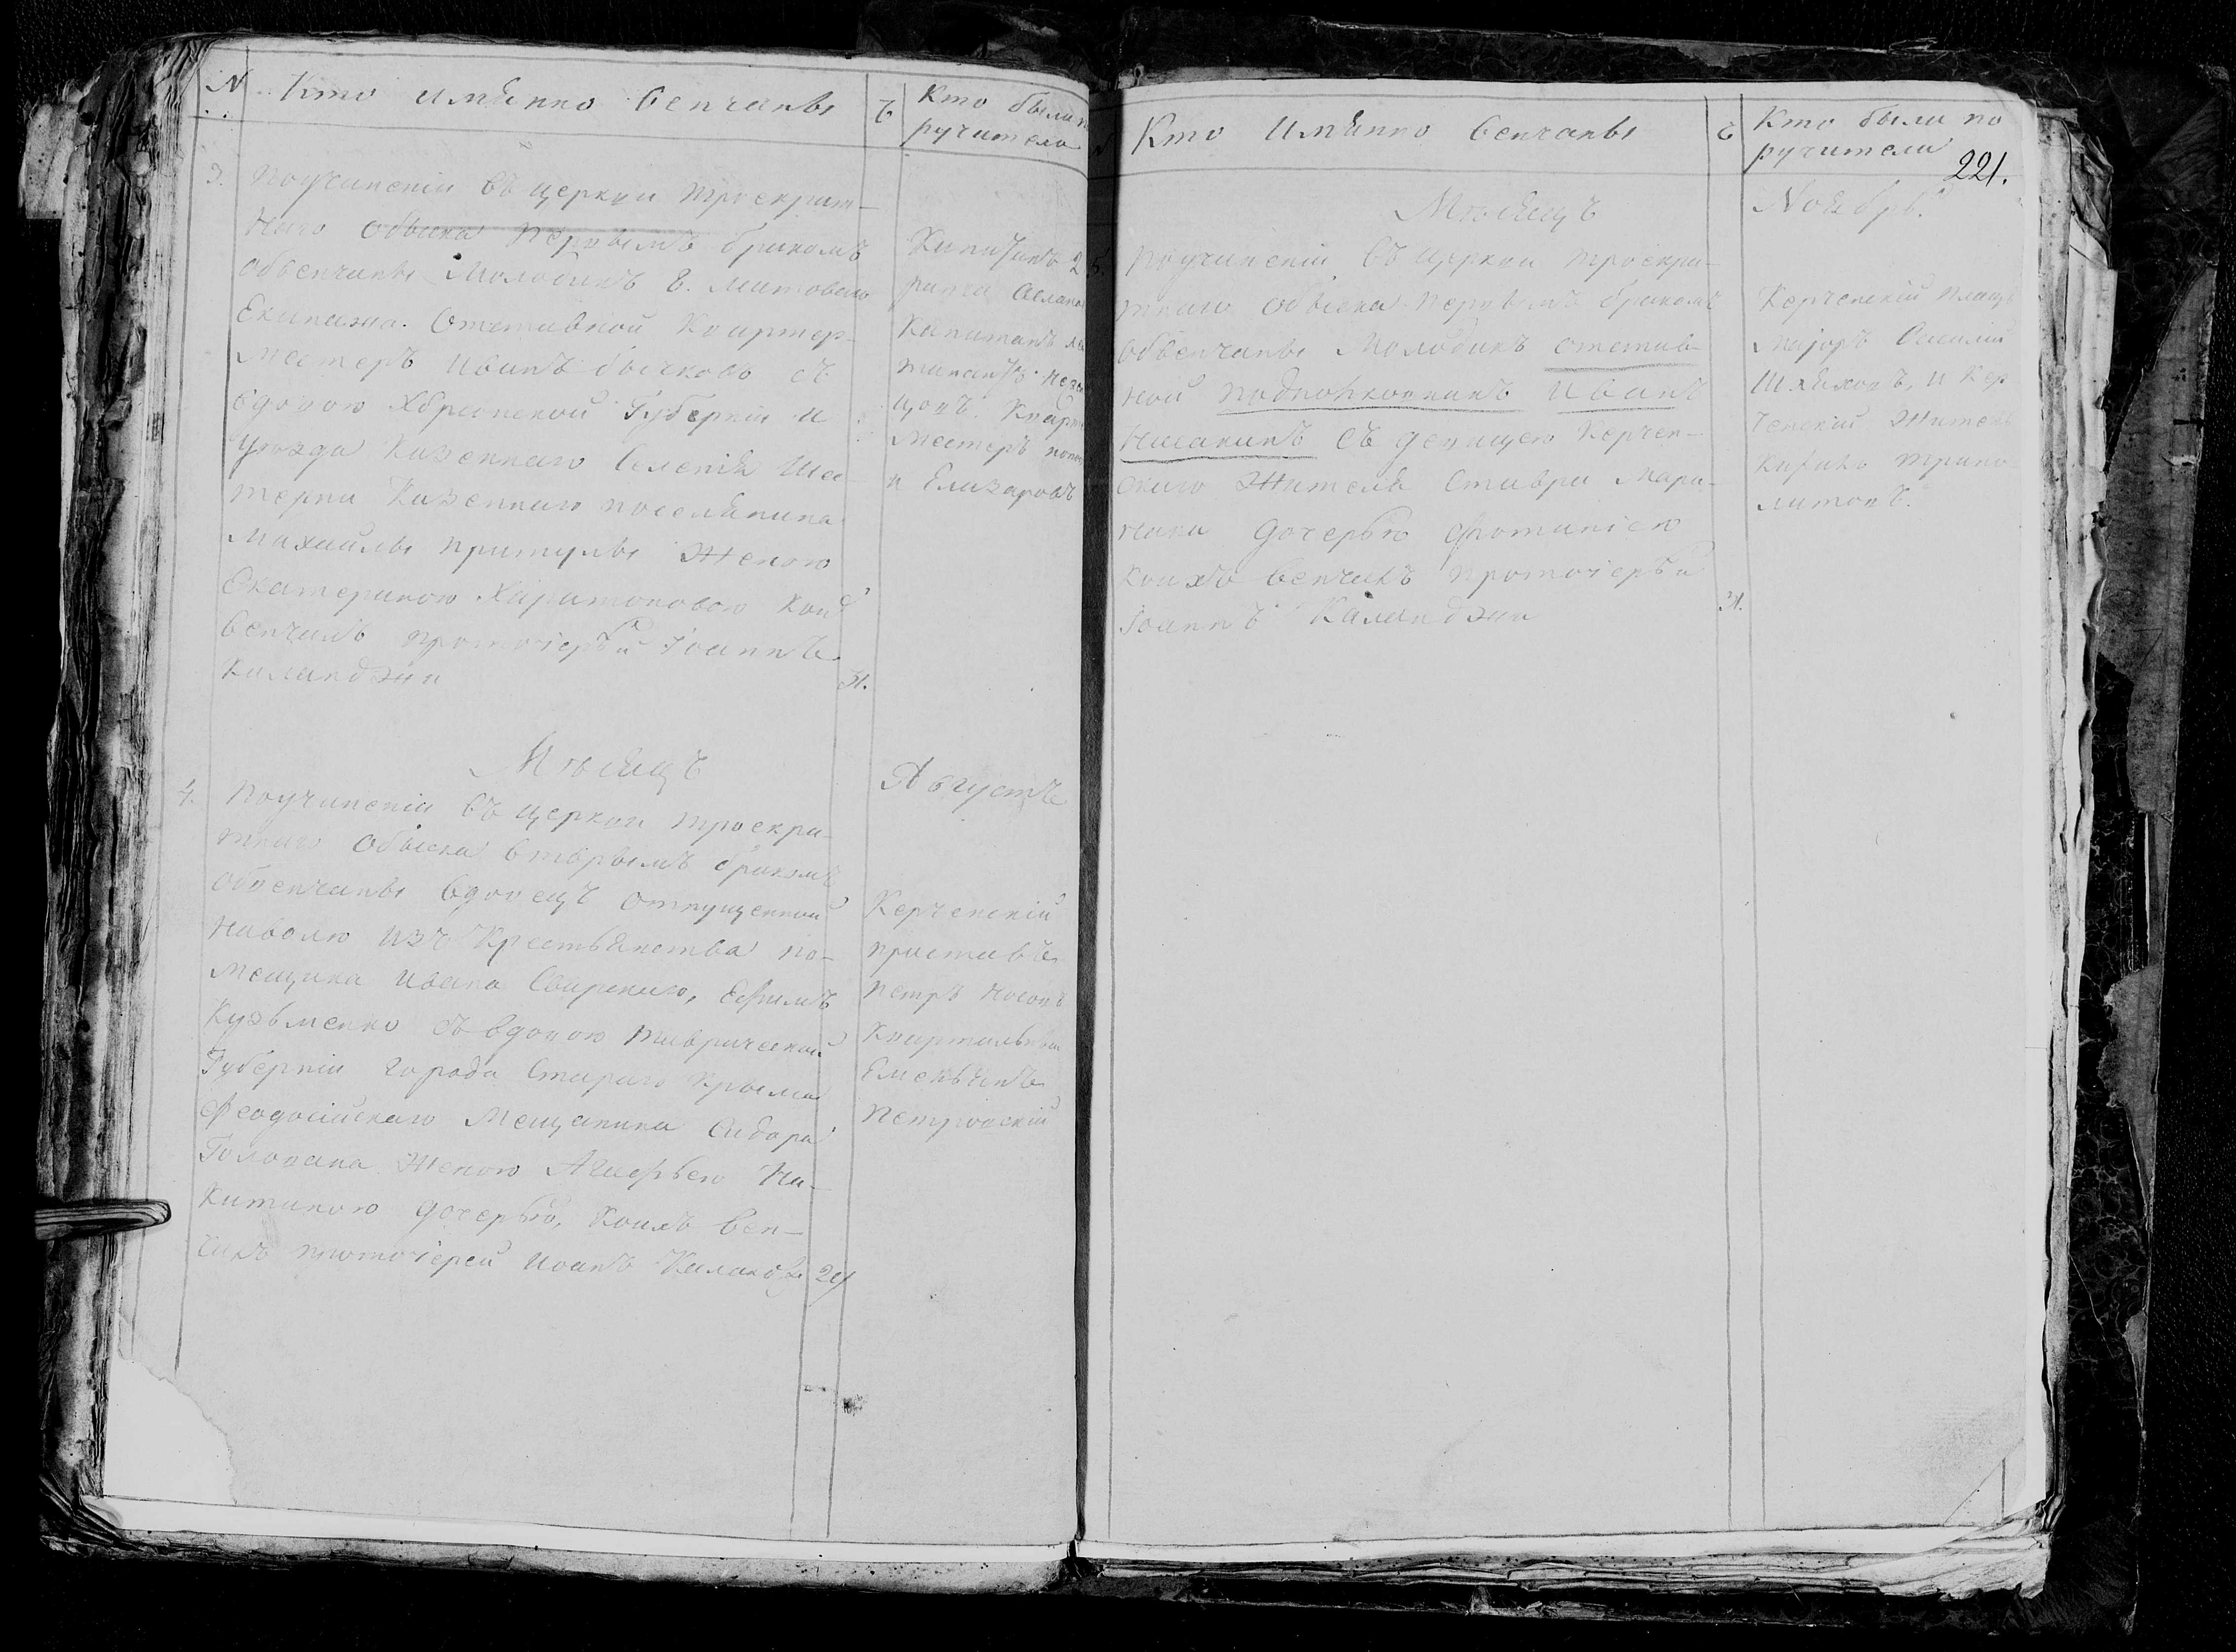 N Кто имянно венчаны
ч
Кто были по
ручители
3. По учинении въ церкви троекрат-
наго обыска первымъ бракомъ
обвенчаны Молодикъ
Екипажа Отставной Квартер-
местеръ Иванъ Бычковъ съ
вдовою Херсонской Губернии и
уезда Казеннаго Селения Шес-
терни Казеннаго поселянина
Михайлы Притулы Женою
Екатериною Харитоновою коих
венчалъ протоиерей Иоаннъ
Каланджи
31.
Капитанъ 2
ранга
Капитанъ
Местеръ
и Елизаровъ
Месяцъ
Августъ
4. По учинении въ церкви троекра-
тнаго обыска вторымъ бракомъ
обвенчаны вдовецъ отпущенной
наволю изъ крестьянства по-
мещика Ивана Сварскаго, Ефимъ
Кузьменко съ вдовою Таврической
Губернии города Стараго Крыма
Феодосийскаго Мещанина Сидора
Голована Женою Агафьею Ни-
китиною дочерью, коихъ вен-
чалъ протоиерей Иоанъ
24
Керченский
приставъ
Петръ Носовъ
Квартальный
Емельянъ
Петровский
Кто имянно венчаны
ч
Кто были по
ручители
221.
Месяцъ
Ноябрь.
5. По учинении въ церкви троекра-
тнаго обыска первымъ бракомъ
обвенчаны Молодикъ отстав-
ной подполковникъ Иванъ
съ девицею Керчен-
скаго Жителя Ставри Мари-
наки дочерью Фотиниею
коихъ венчалъ протоиерей
Иоаннъ Каланджи
31.
Керченский плацъ
маиоръ Василий
и Кер
ченский Житель